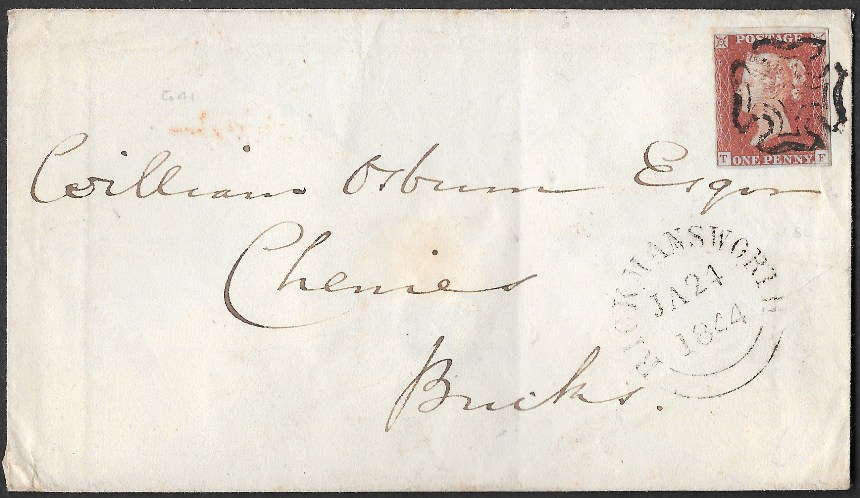 POSTAGE
T ONE PENNY F
William Osburn Esqr
Chenies
Bucks.
RICKMANSWORTH
JA 24
1844